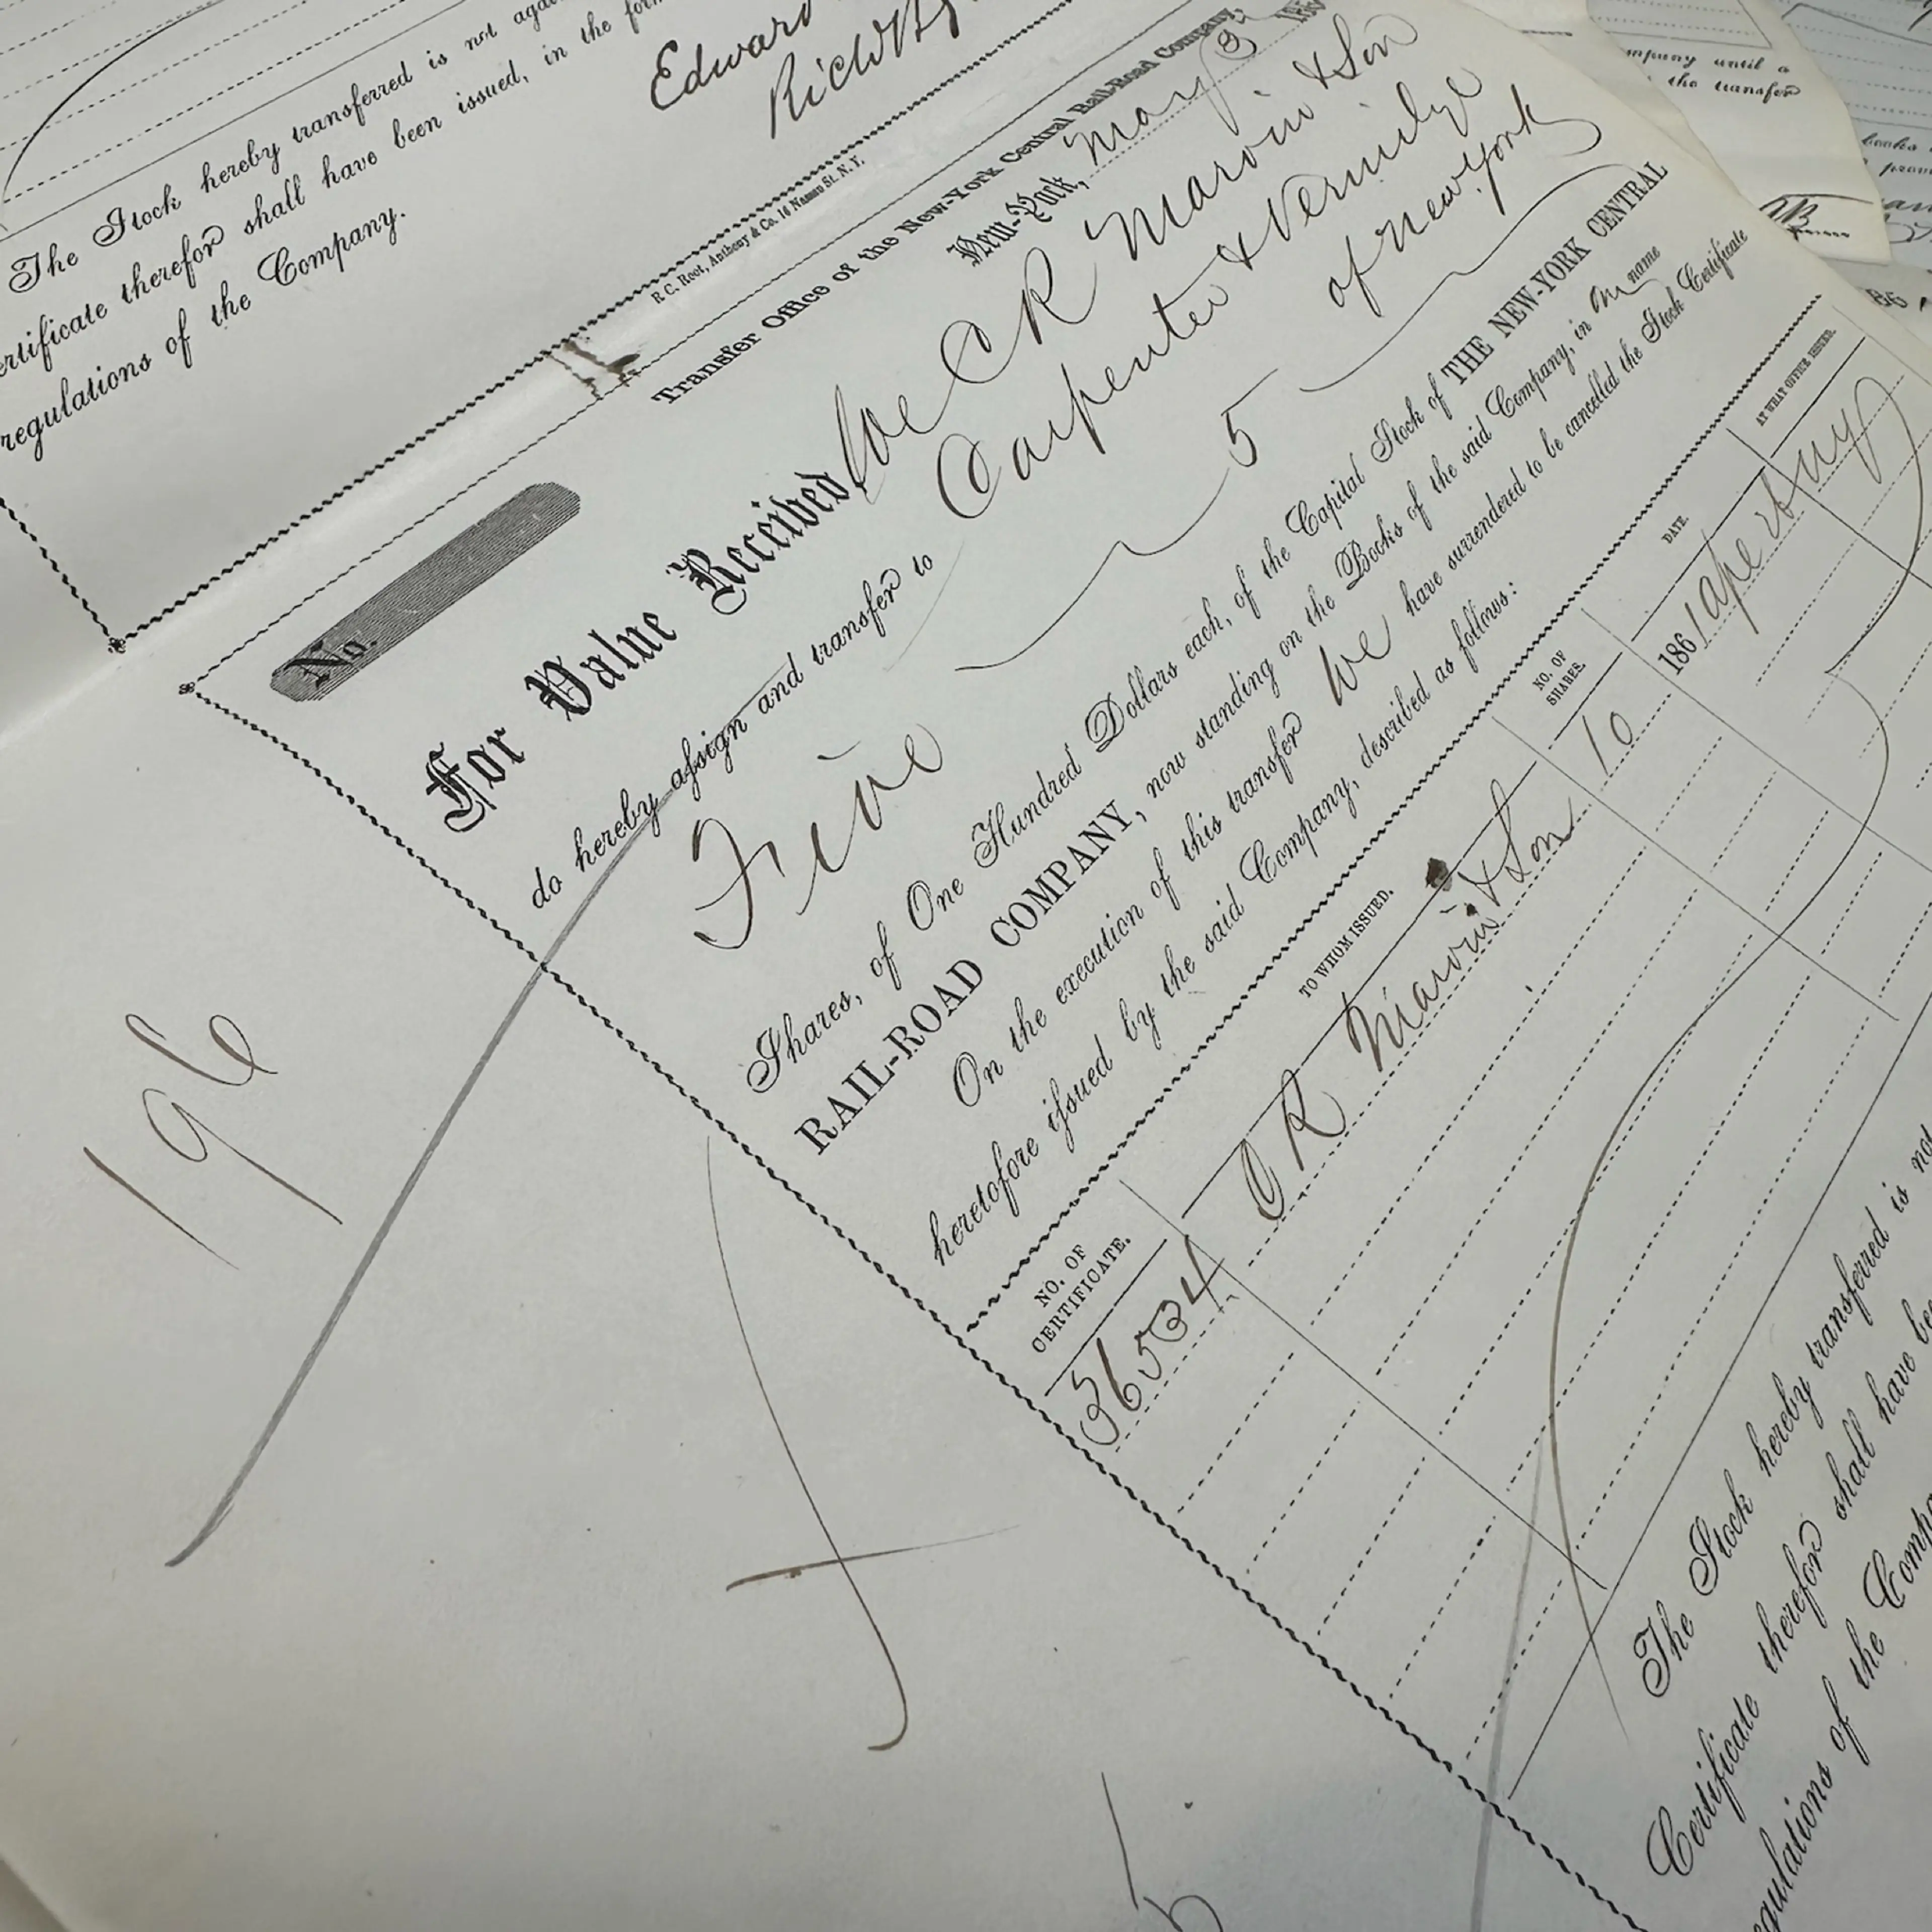 The Stock hereby transferred is not
ertificate therefor shall have been issued, in the
regulations of the Company.
Edward
R. C. Root, Anthony & Co. 16 Nassau St. N.Y.
Transfer Office of the New-York Central Rail-Road Company,
New-York, May 3
No.
For Value Received, We C R Marvin & Son
do hereby assign and transfer to Carpenter & Vermilye
of New York
Five 5
Shares, of One Hundred Dollars each, of the Capital Stock of THE NEW-YORK CENTRAL
RAIL-ROAD COMPANY, now standing on the Books of the said Company, in our name
On the execution of this transfer We have surrendered to be cancelled the Stock Certificate
heretofore issued by the said Company, described as follows:
NO. OF CERTIFICATE. TO WHOM ISSUED. NO. OF SHARES. DATE. AT WHAT OFFICE ISSUED.
36534 C R Marvin & Son 10 1861 NY
The Stock hereby transferred is not
Certificate therefor shall have
egulations of the
196
5
mpany until a
the transfer
books